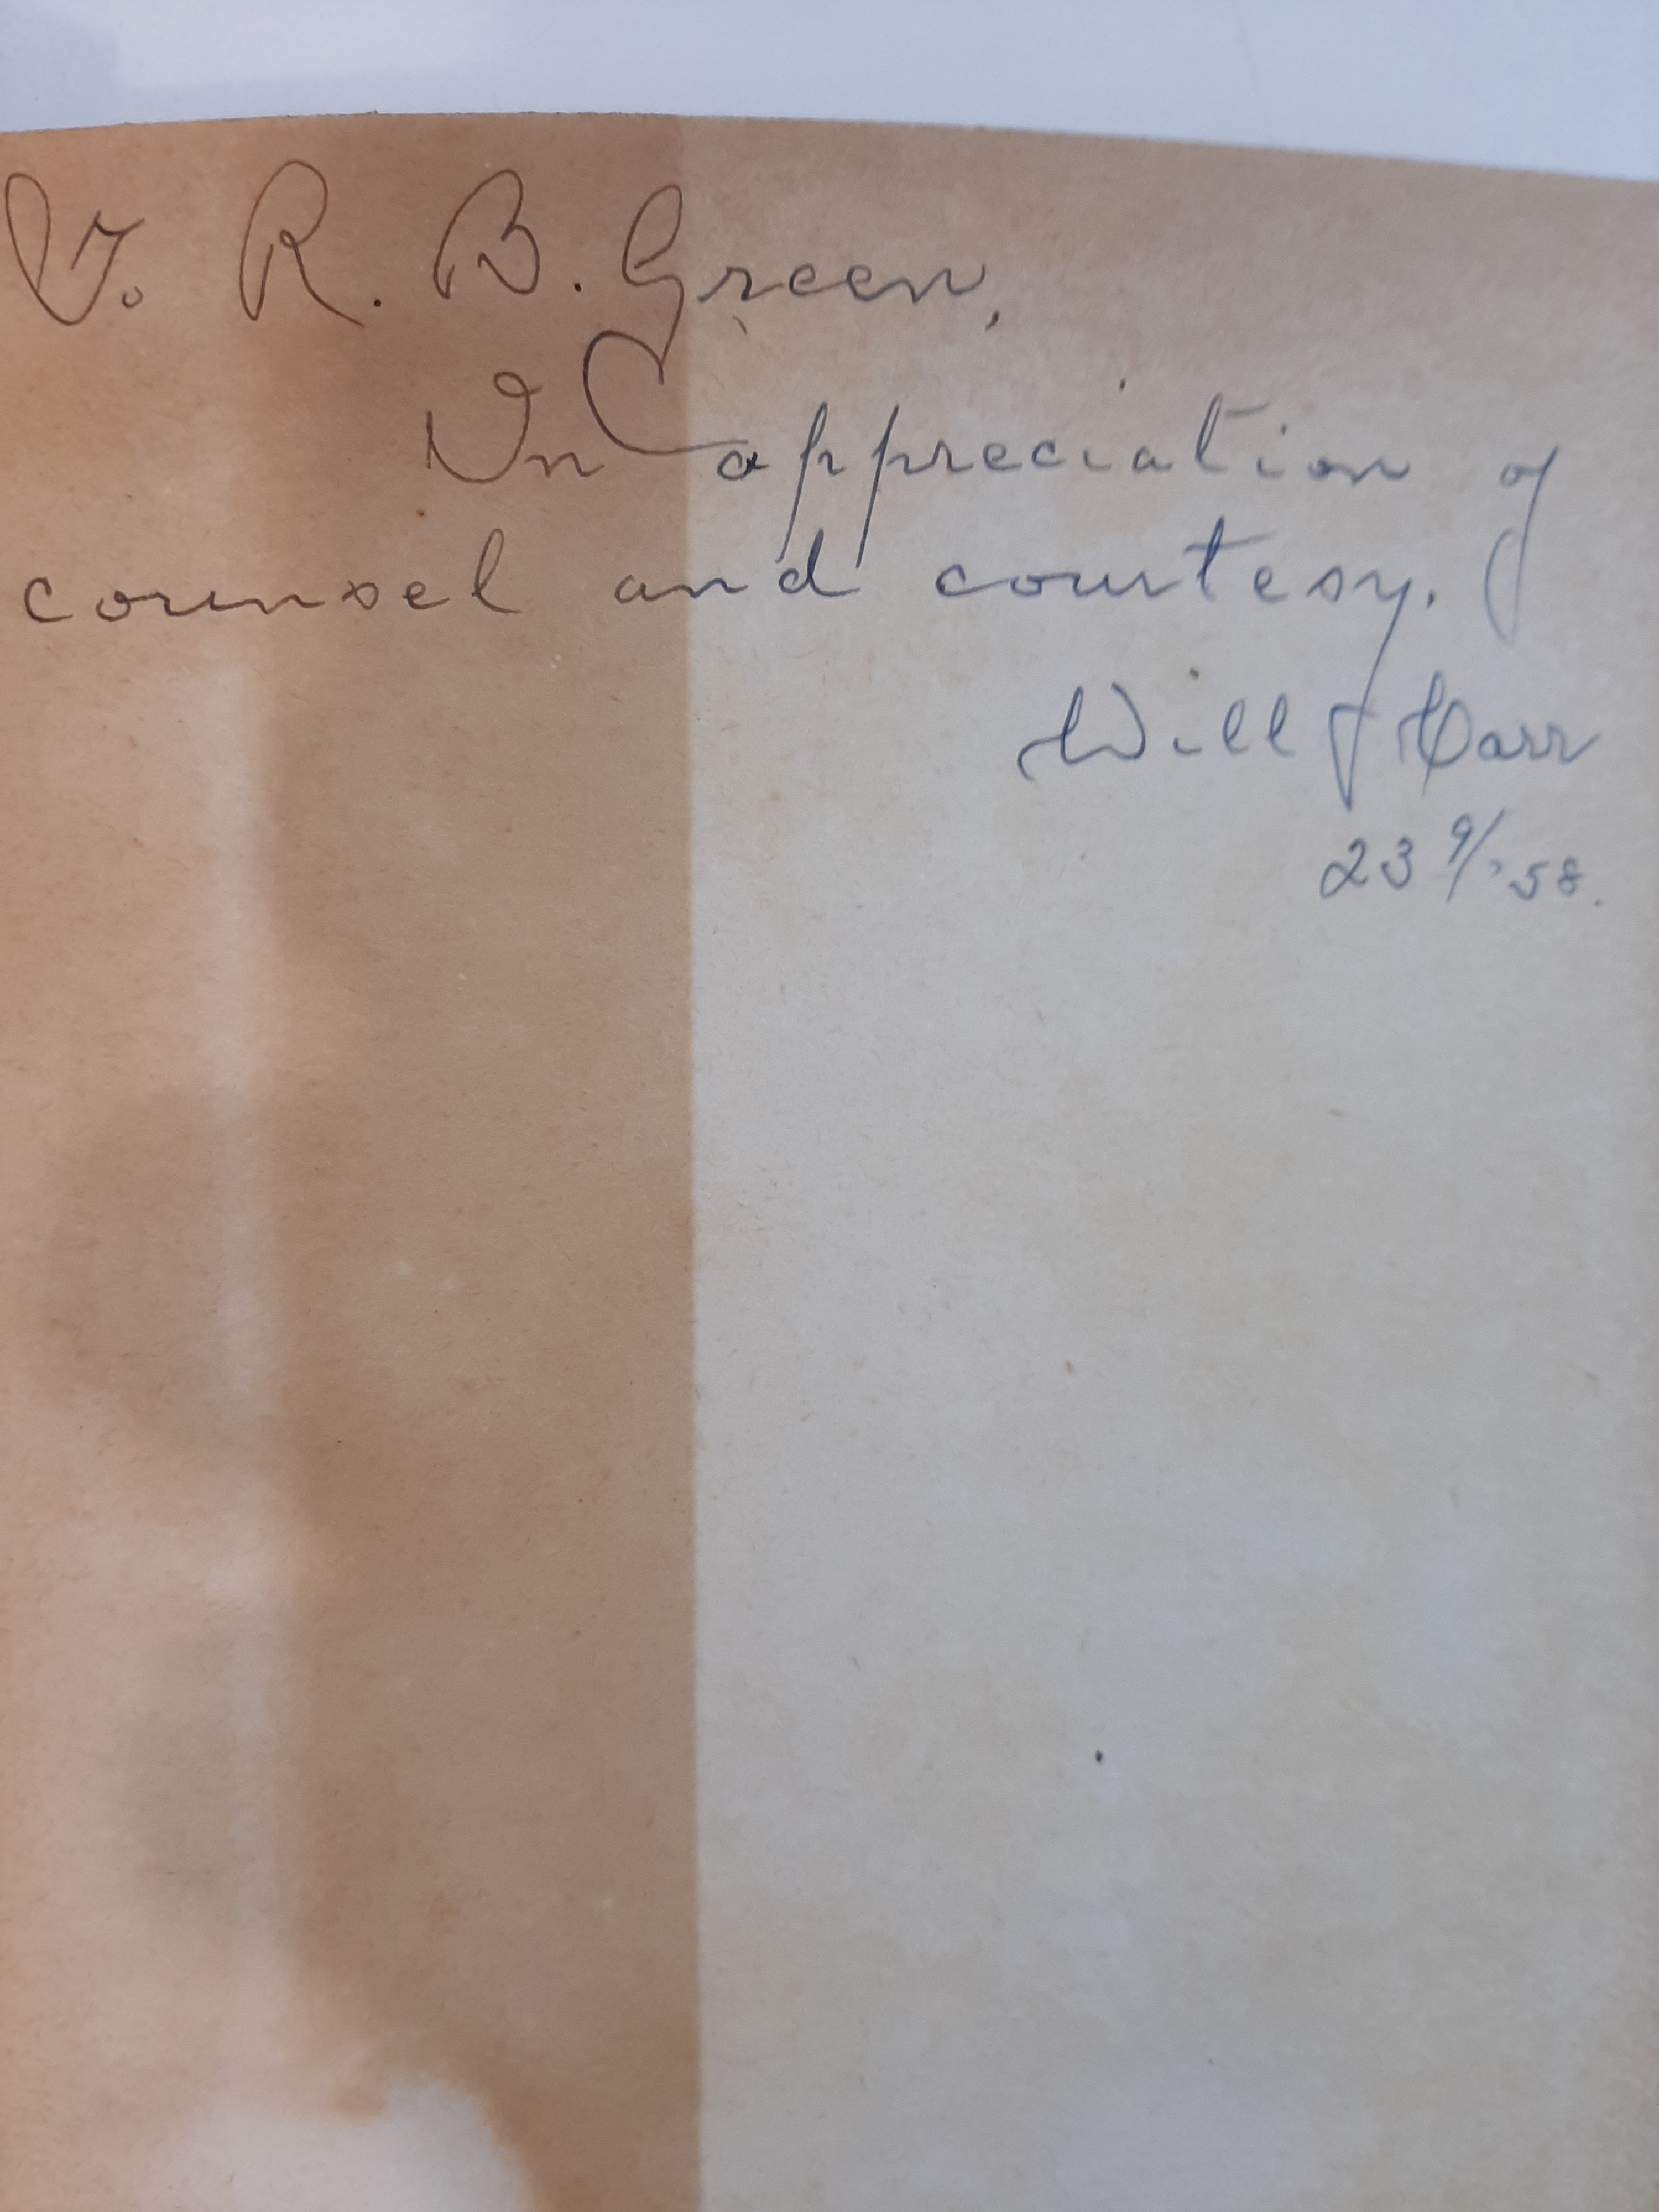 V. R. B. Green,
In appreciation of
counsel and courtesy.
Will
23 9/ 58.